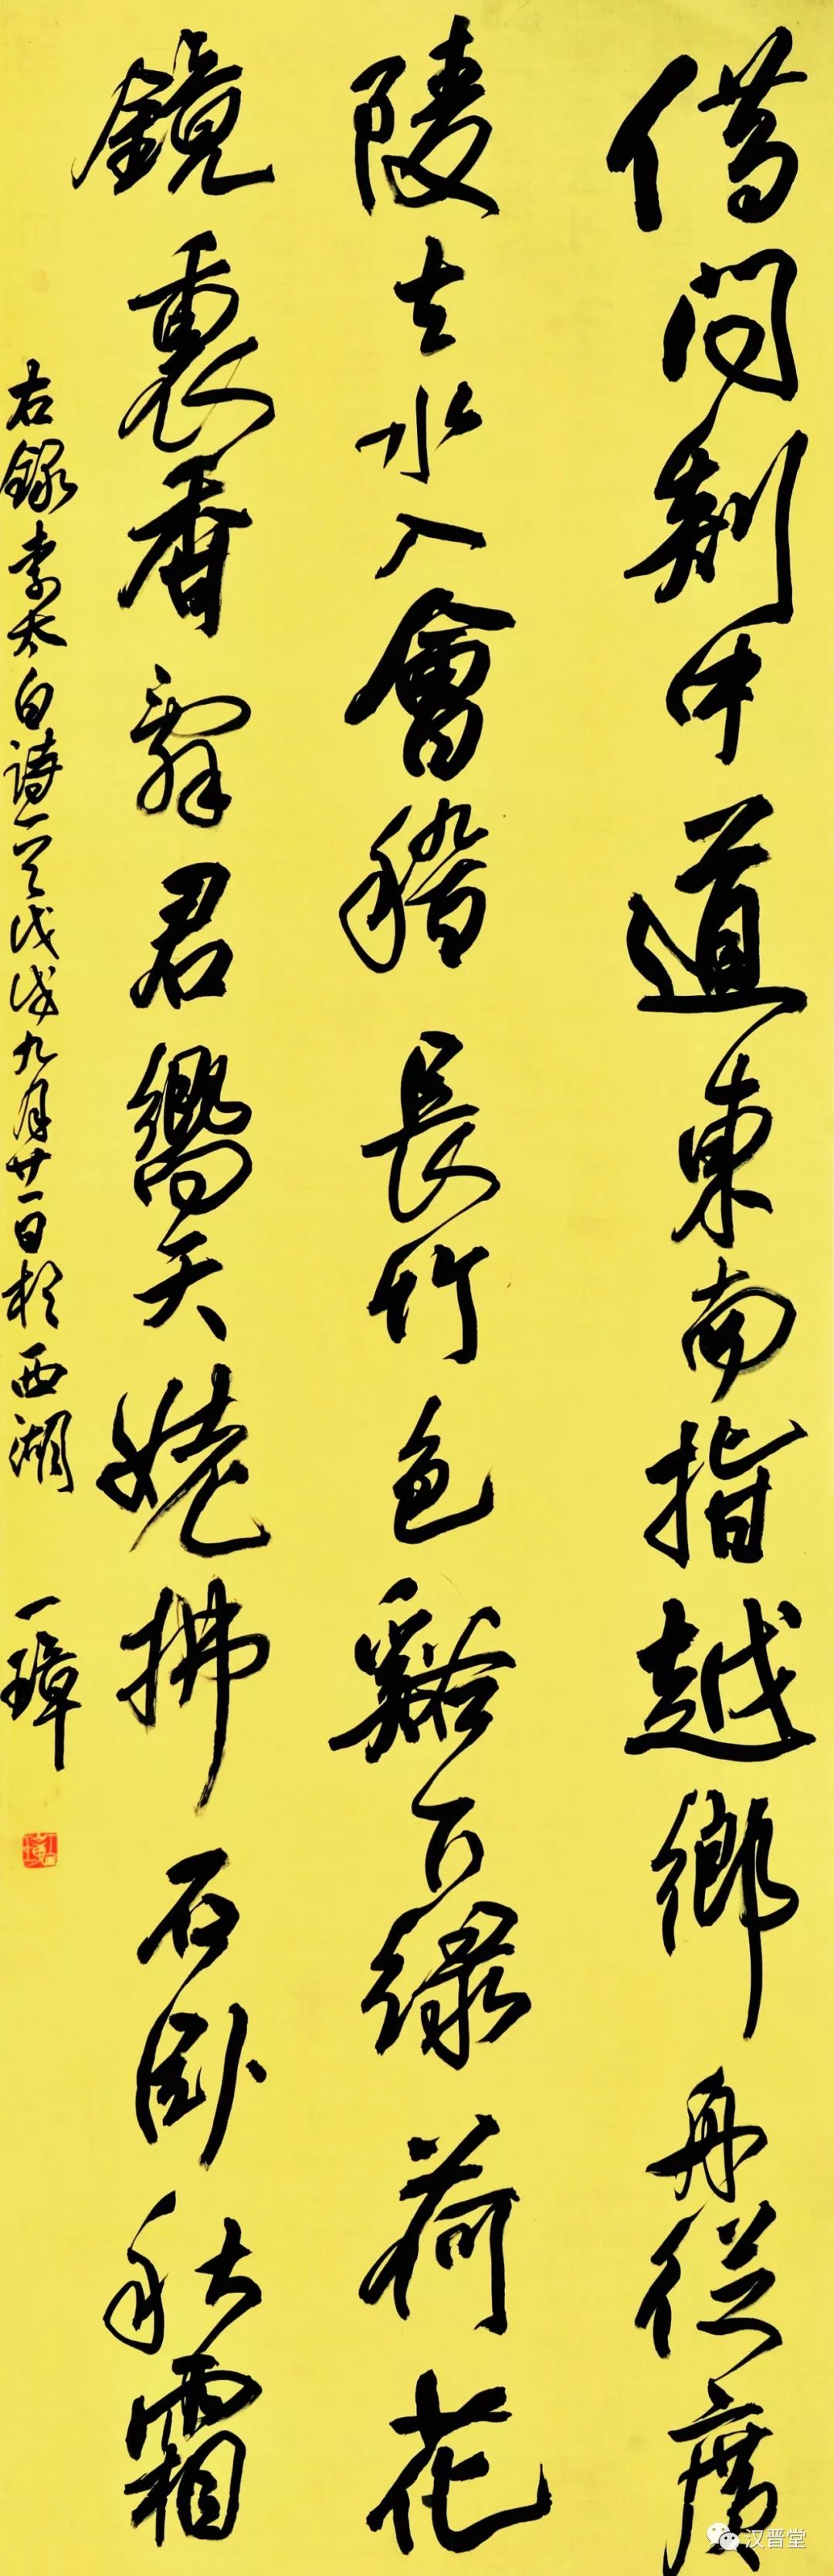 借問剡中道東南指越鄉舟從廣
陵去水入會稽長竹色谿下綠荷花
鏡裏香辭君嚮天姥拂石卧秋霜
右錄李太白詩一首戊戌九月廿一日於西湖 一璋
汉晋堂